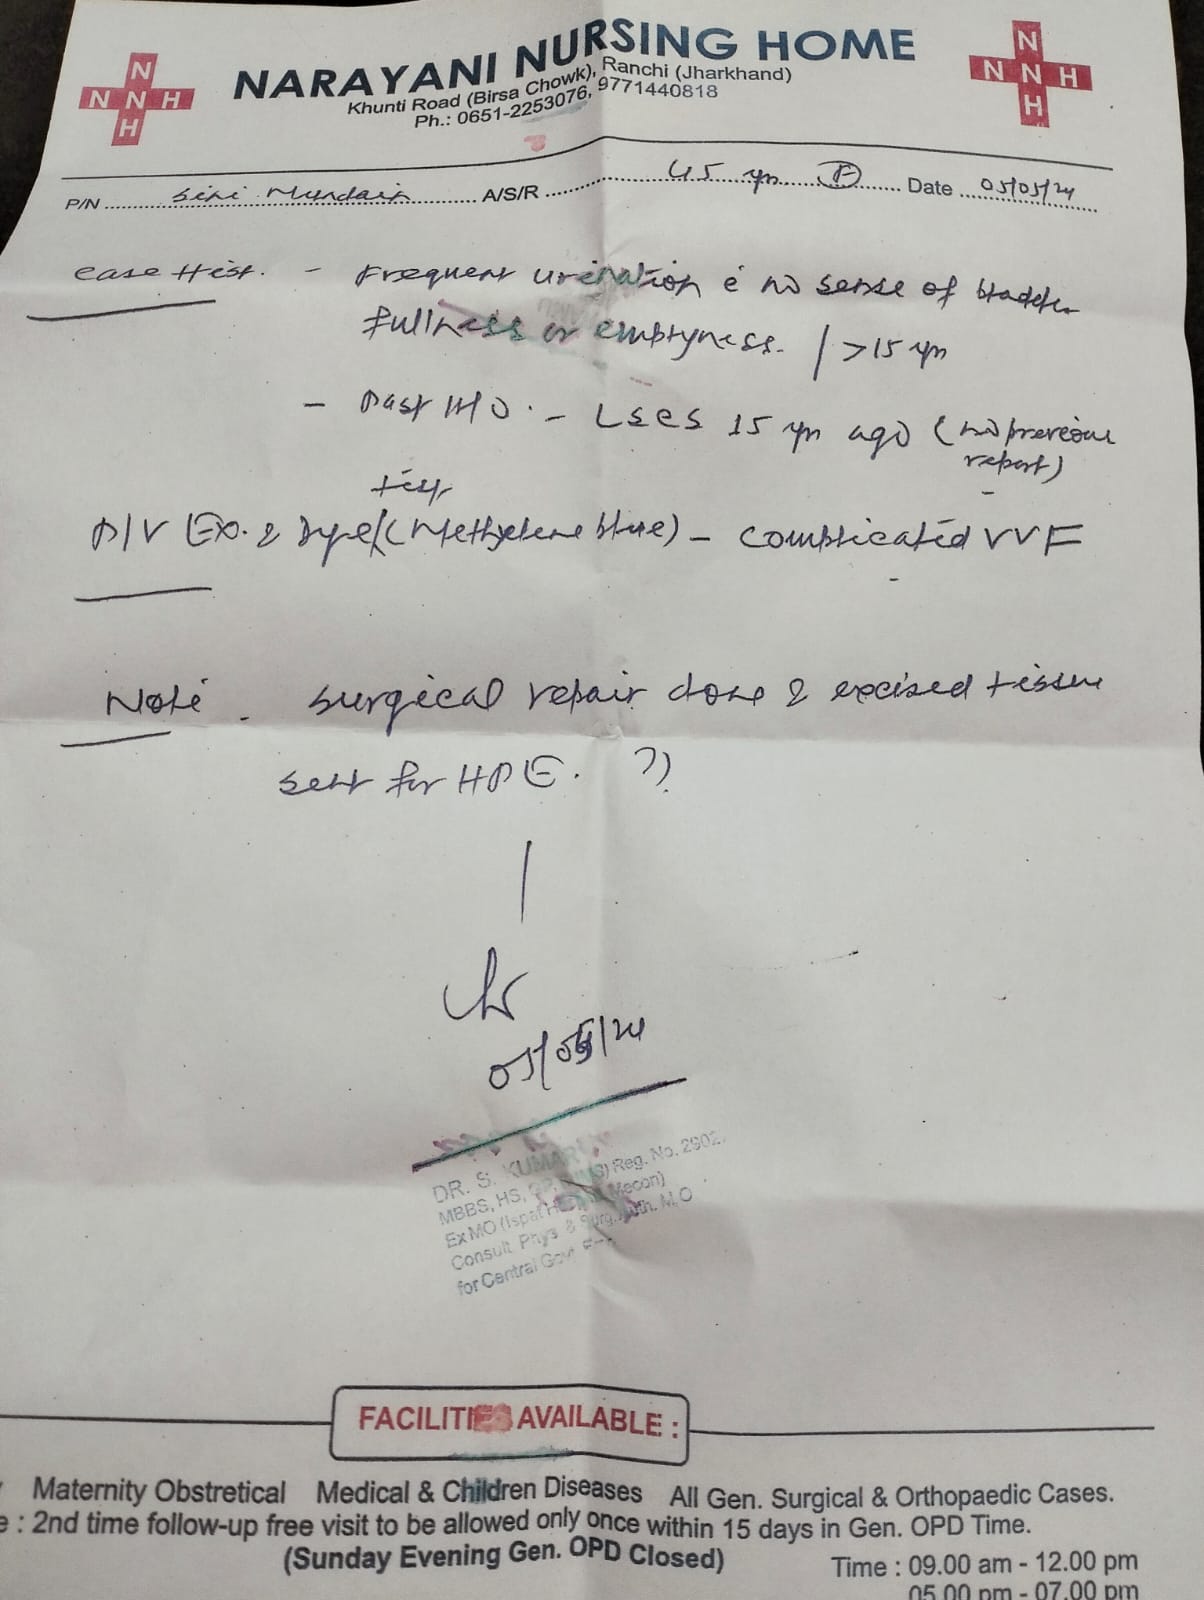 N
N N H
H
NARAYANI NURSING HOME
Khunti Road (Birsa Chowk), Ranchi (Jharkhand)
Ph.: 0651-2253076, 9771440818
N
N N H
H
P/N Sini Mundain A/S/R 45 yrs F Date 05/05/24
Case Hist. - Frequent urination c no sense of bladder
fullness or emptyness. / >15 yrs
- Past H/O. - LSCS 15 yrs ago (no previous
report)
test
P/V Ex. & Dye (Methyelene blue) - complicated VVF
Note. Surgical repair done & excised tissue
sent for HPE. ??
05/05/24
DR. S. KUMAR
MBBS, HS, Reg. No. 2902
Ex MO (Ispat Mecon)
Consult. Phys & Surg. Auth. M.O
for Central Gov
FACILITIES AVAILABLE :
Maternity Obstretical Medical & Children Diseases All Gen. Surgical & Orthopaedic Cases.
e : 2nd time follow-up free visit to be allowed only once within 15 days in Gen. OPD Time.
(Sunday Evening Gen. OPD Closed)
Time : 09.00 am - 12.00 pm
05.00 pm - 07.00 pm